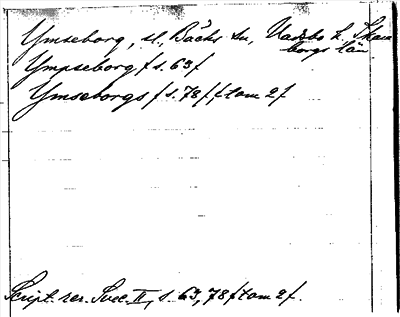 Ymseborg, sl., Bäcks sn, Vadsbo h. Skara-
borgs län
Ympseborg f s. 63 f
Ymseborgs f s. 78 f ftom 2 f.
Script. rer. Svec. II, s. 63, 78 ftom 2 f.